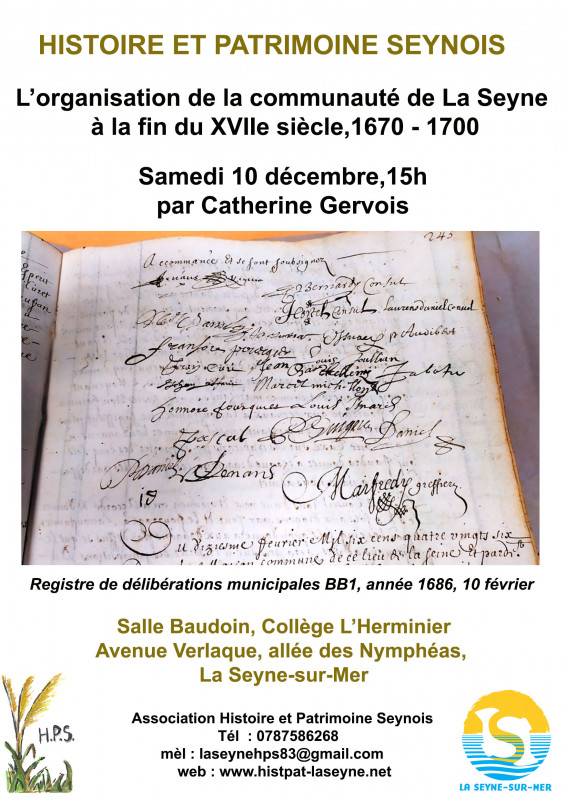 HISTOIRE ET PATRIMOINE SEYNOIS
L'organisation de la communauté de La Seyne
à la fin du XVIIe siècle,1670 - 1700
Samedi 10 décembre,15h
par Catherine Gervois
245
Accommancé et se sont soubsignez
Bernardy Consul
Consul Laurens daniel consul
Audibert
Jean Louis Joullian
Marcel mich
honnore fourques Louis
Pascal Daniel
Daniel Denans
Marfredy greffier
18
Du dixiesme fevrier Mil six cens quatre vingts six
commune de ce lieu de la seine et pardt
Registre de délibérations municipales BB1, année 1686, 10 février
Salle Baudoin, Collège L'Herminier
Avenue Verlaque, allée des Nymphéas,
La Seyne-sur-Mer
H.P.S.
Association Histoire et Patrimoine Seynois
Tél : 0787586268
mèl : laseynehps83@gmail.com
web : www.histpat-laseyne.net
LA SEYNE-SUR-MER